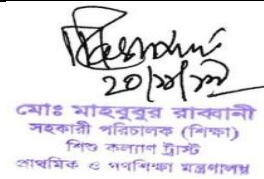 মোঃ মাহবুবুর রাব্বানী
সহকারী পরিচালক (শিক্ষা)
শিশু কল্যাণ ট্রাস্ট
প্রাথমিক ও গণশিক্ষা মন্ত্রণালয়